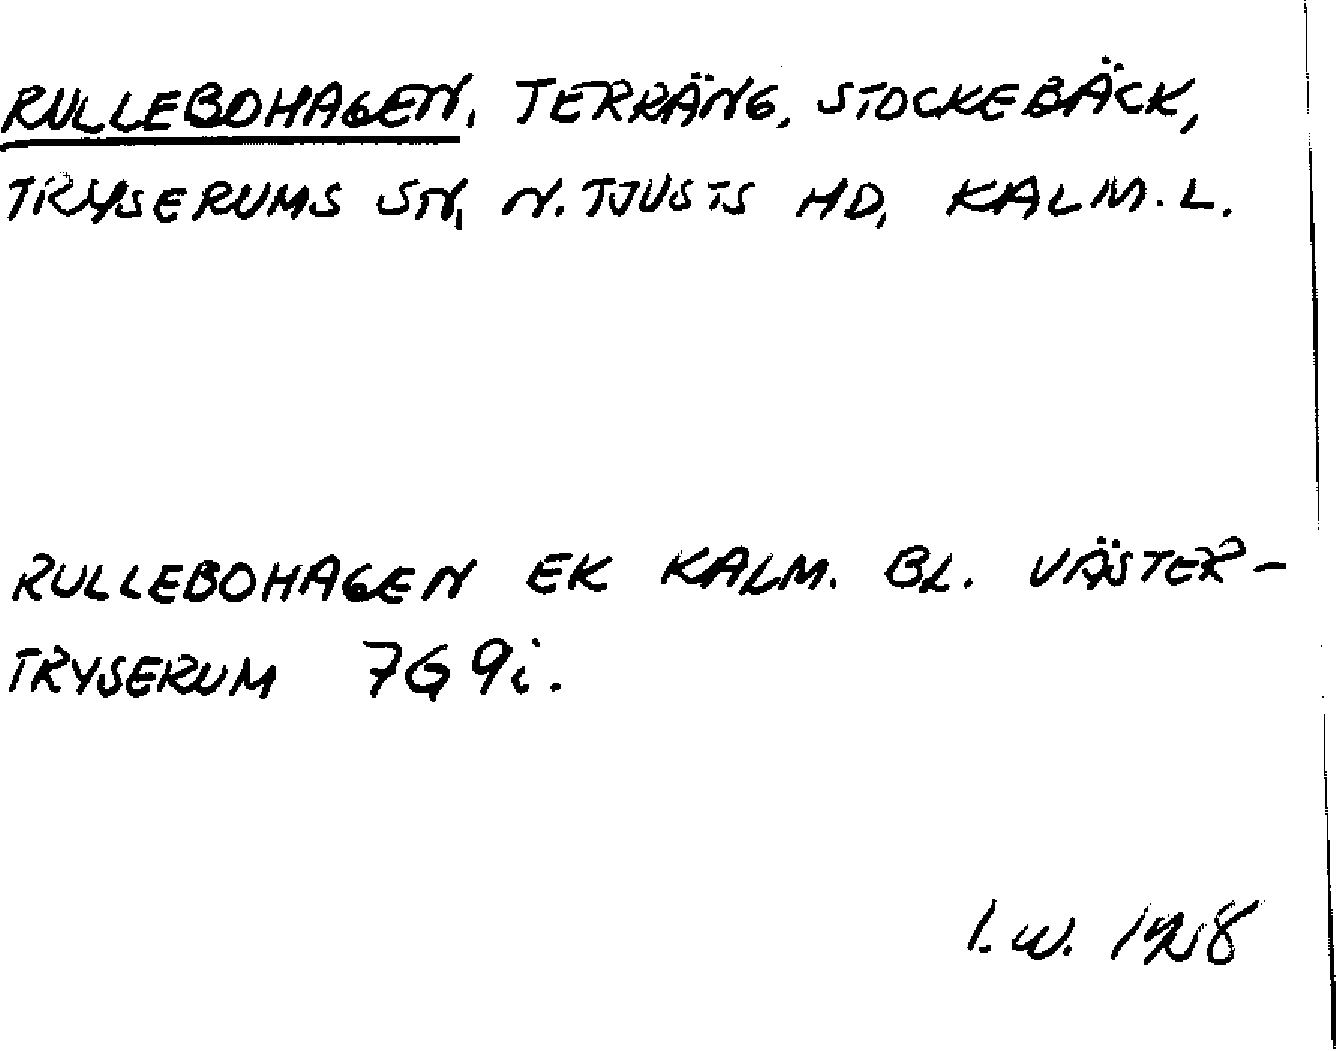 RULLEBOHAGEN, TERRÄNG, STOCKEBÄCK,
TRYSERUMS SN, N. TJUSTS HD, KALM. L.
RULLEBOHAGEN EK KALM. BL. VÄSTER-
TRYSERUM 7G 9i.
I. W.